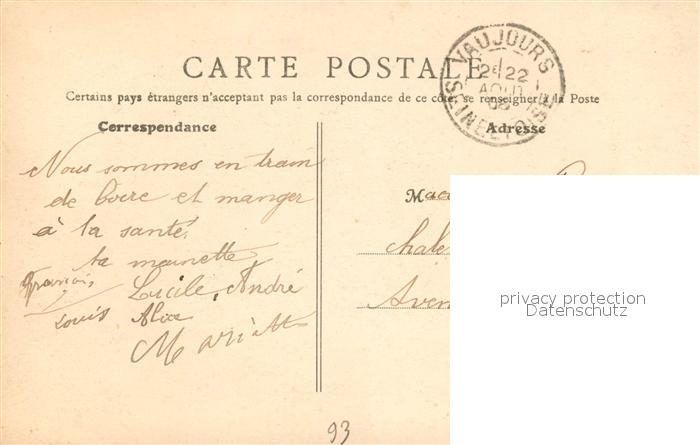 CARTE POSTALE
Certains pays étrangers n'acceptant pas la correspondance de ce côté, se renseigner à la Poste
VAUJOURS
22
AOUT
SEINE ET OISE
Correspondance
Adresse
Nous sommes en train
de boire et manger
à la santé.
ta mainette
François, Lucile, André
Louis Alice
M
chale
Aven
privacy protection
Datenschutz
93